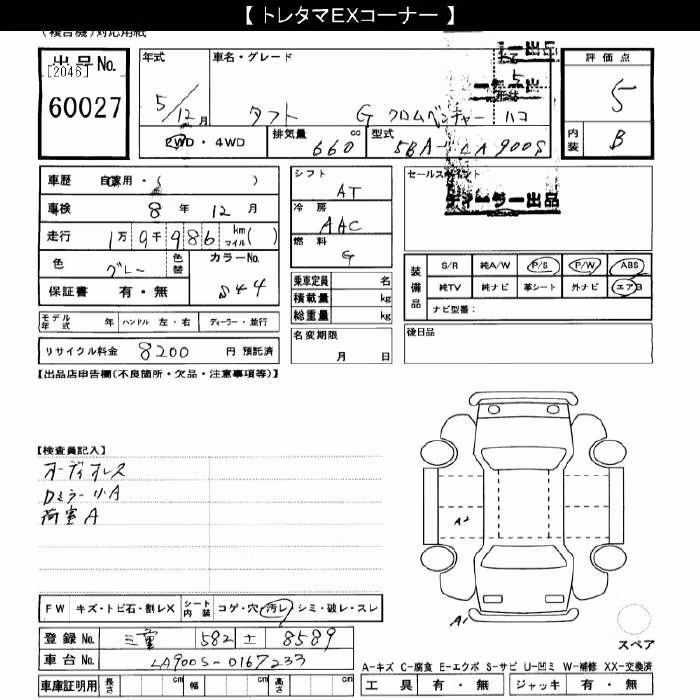 【 トレタマEXコーナー 】
(複合機)対応用紙
出品No.
[2046]
60027
年式
5/12月
車名・グレード
タフト G クロムベンチャー ハコ
5
形状
評価点
5
内装
B
2WD・4WD
排気量 660 cc
型式 5BA-LA900S
車歴 自家用・( )
車検 8年 12月
走行 1万9千986 km マイル( )
色 グレー 色替
カラーNo. S44
保証書 有・無
シフト AT
冷房 AAC
燃料 G
乗車定員 名
積載量 kg
総重量 kg
セールスポイント
ディーラー出品
装備品
S/R 純A/W P/S P/W ABS
純TV 純ナビ 革シート 外ナビ エアB
ナビ型番:
モデル年式 年 ハンドル 左・右 ディーラー・並行
名変期限 月 日
後日品
リサイクル料金 8200 円 預託済
【出品店申告欄(不良箇所・欠品・注意事項等)】
【検査員記入】
オーディオレス
Dミラー リ.A
荷室A
A2
A1
FW キズ・トビ石・割レX シート内装 コゲ・穴・汚レ・シミ・破レ・スレ
スペア
登録No. 三重 582 ± 8589
車台No. LA900S-0167233
A-キズ C-腐食 E-エクボ S-サビ U-凹ミ W-補修 XX-交換済
車庫証明用 長さ cm 幅 cm 高さ cm
工具 有・無 ジャッキ 有・無